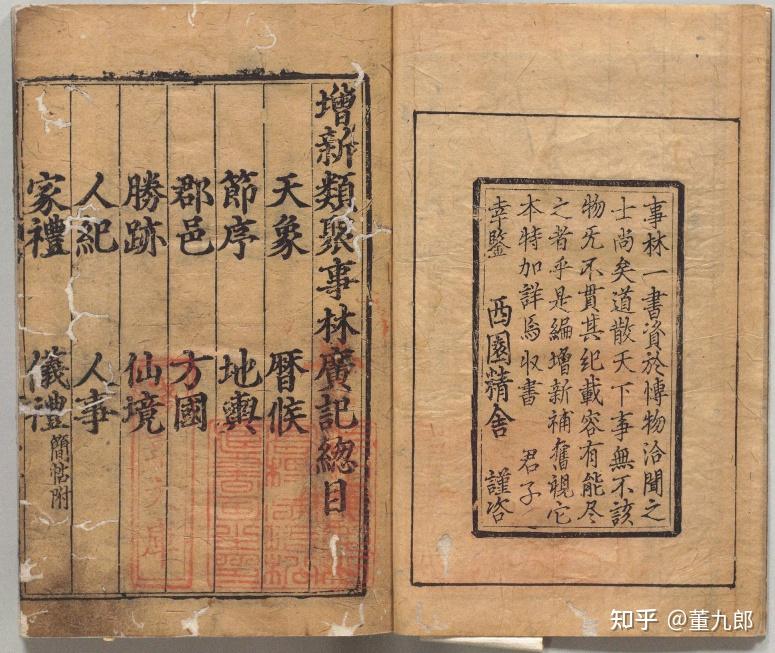 事林一書資於愽物洽聞之
士尚矣道散天下事無不該
物旡不貫其紀載容有能尽
之者乎是編增新補舊視它
本特加詳焉収書 君子
幸鑒 西園精舍 謹咨
增新類聚事林廣記總目
天象 曆候
節序 地輿
郡邑 方國
勝跡 仙境
人紀 人事
家禮 儀禮簡帖附
知乎 @董九郎